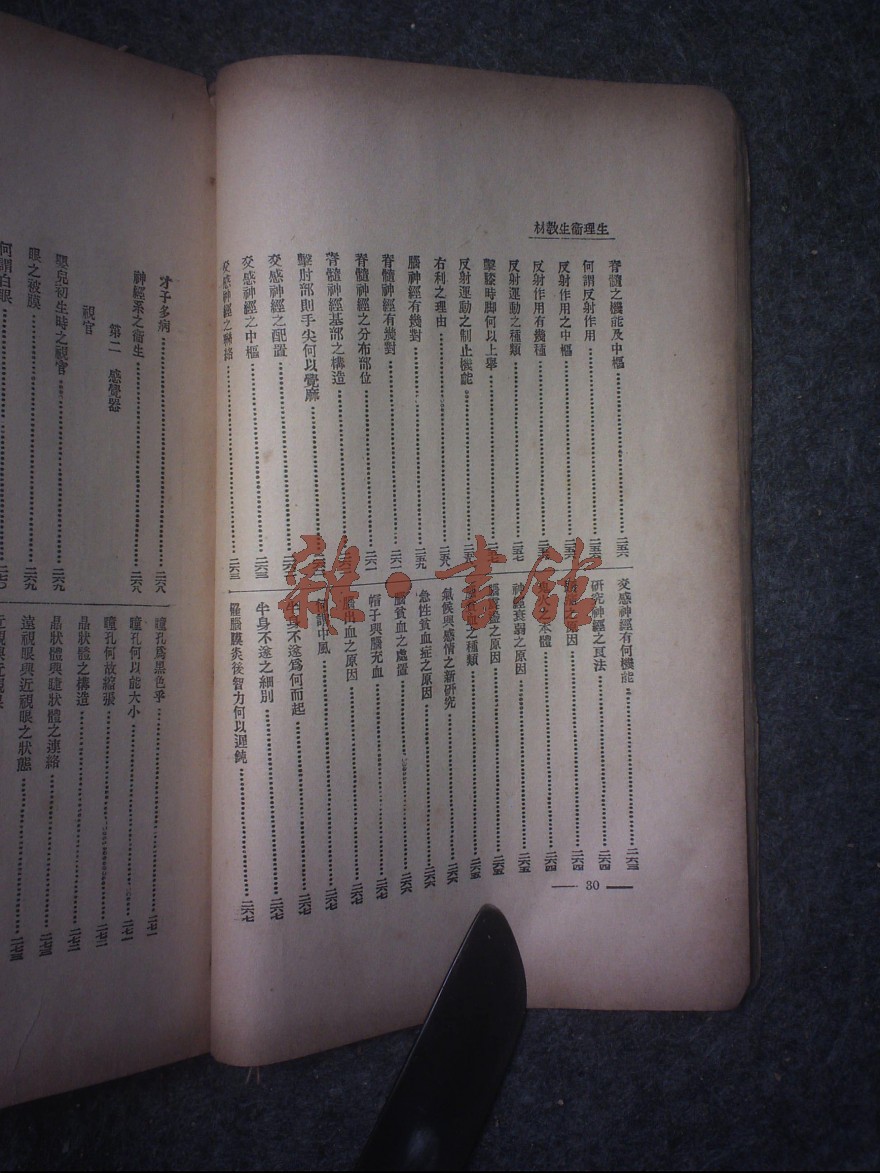 生理衞生教材
脊髓之機能及中樞 二五六
何謂反射作用 二五六
反射作用之中樞 二五六
反射作用有幾種
反射運動之種類 二五七
擊膝時脚何以上舉
反射運動之制止機能
右利之理由 二五八
腦神經有幾對 二五九
脊髓神經有幾對 二六一
脊髓神經之分布部位 二六一
脊髓神經基部之構造
擊肘部則手尖何以覺麻
交感神經之配置
交感神經之中樞 二六三
交感神經之聯絡 二六三
交感神經有何機能 二六三
研究神經之良法 二六四
之原因 二六四
二六四
神經衰弱之原因 二六五
之原因 二六五
之種類 二六五
氣候與感情之新研究 二六六
急性貧血症之原因 二六六
腦貧血之處置 二六六
帽子與腦充血 二六七
腦出血之原因 二六七
何謂中風 二六七
半身不遂爲何而起 二六七
半身不遂之細別 二六七
罹腦膜炎後智力何以遲鈍 二六七
30
才子多病 二六八
神經系之衞生 二六八
第二 感覺器
視官
嬰兒初生時之視官 二六九
眼之被膜 二六九
何謂白眼 二七〇
瞳孔爲黑色乎 二七一
瞳孔何以能大小 二七一
瞳孔何故縮張 二七二
晶狀體之構造 二七二
晶狀體與睫狀體之連絡
遠視眼與近視眼之狀態
雜·書館